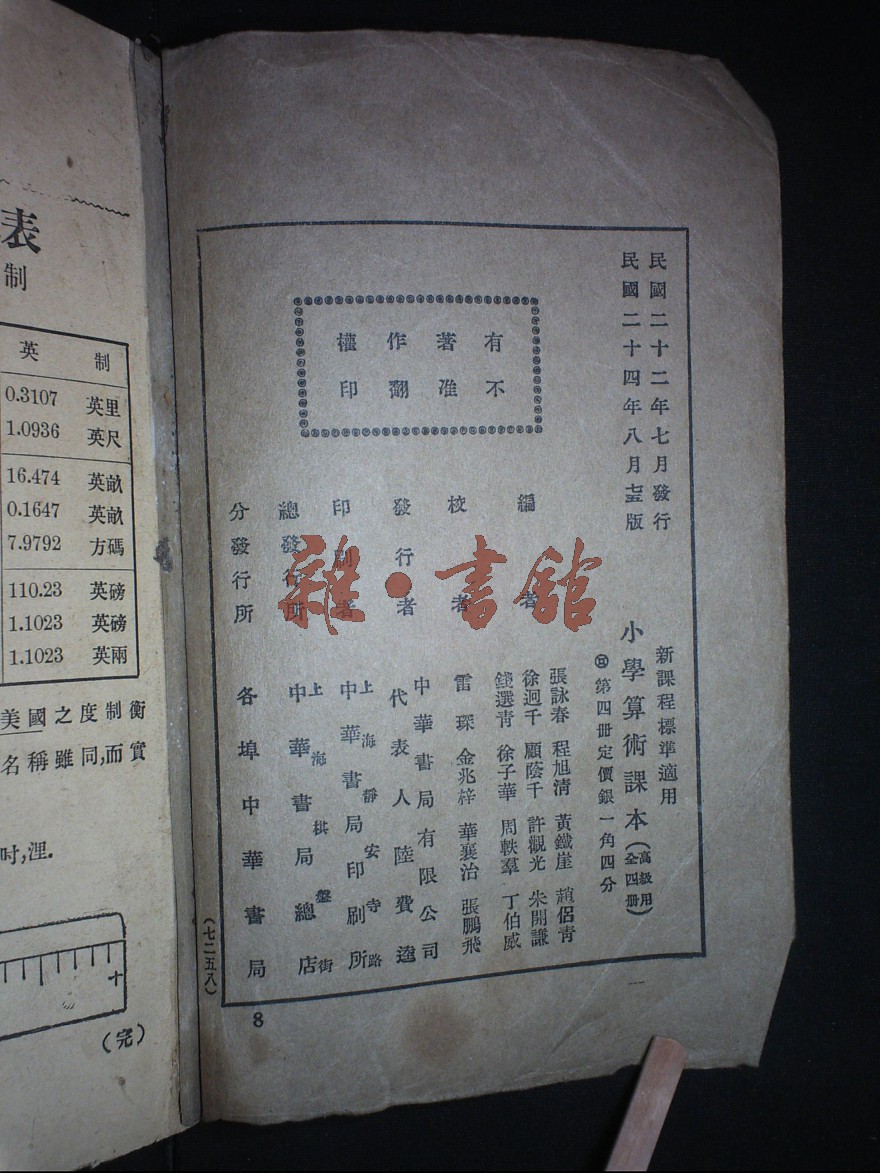 民國二十二年七月發行
民國二十四年八月版
新課程標準適用
小學算術課本(高級用 全四冊)
第四冊定價銀一角四分
有著作權
不准翻印
編者
張詠春 程旭清 黃鐵崖 趙侶青
徐迥千 顧蔭千 許觀光 朱開謙
錢選青 徐子華 周軼羣 丁伯威
校者
雷琛 金兆梓 華襄治 張鵬飛
發行者
中華書局有限公司
代表人 陸費逵
印刷者
上海靜安寺路
中華書局印刷所
總發行所
上海棋盤街
中華書局總店
分發行所
各埠中華書局
(七二五八)
8
雜·書館
表
制
英 制
0.3107 英里
1.0936 英尺
16.474 英畝
0.1647 英畝
7.9792 方碼
110.23 英磅
1.1023 英磅
1.1023 英兩
美國之度制衡
名稱雖同,而實
吋,浬.
十
(完)